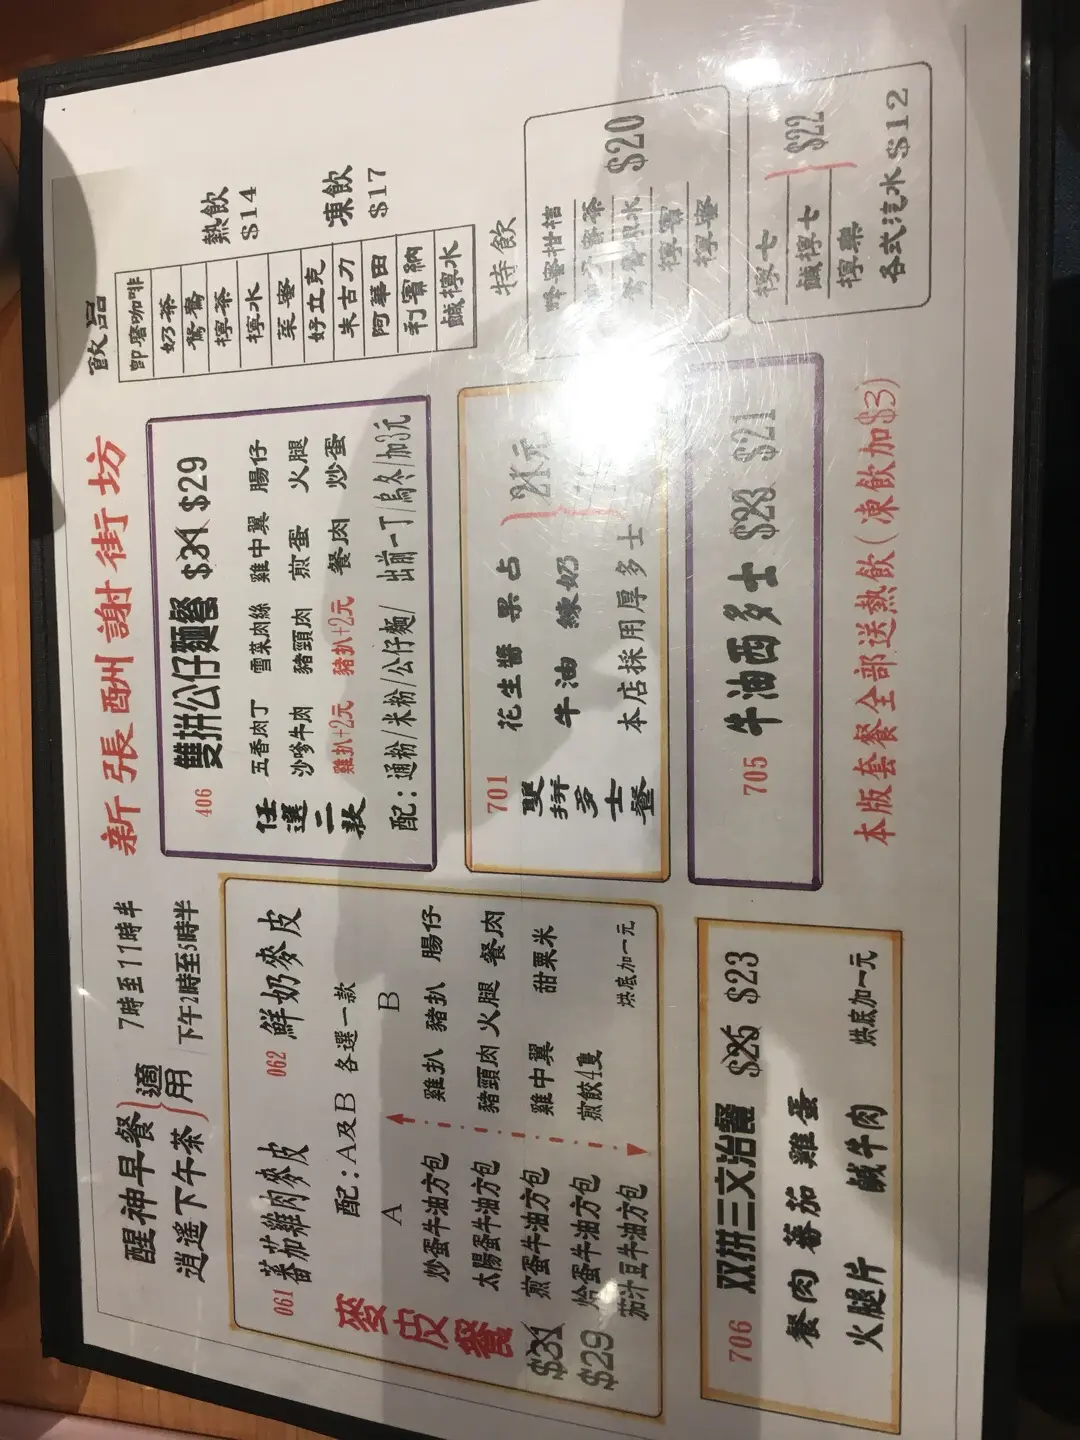 新張酬謝街坊
醒神早餐 7時至11時半
逍遥下午茶 下午2時至5時半
適用
061 蕃茄雞肉麥皮 062 鮮奶麥皮
配：A及B 各選一款
麥皮餐
$31
$29
A B
炒蛋牛油方包 雞扒 豬扒 腸仔
太陽蛋牛油方包 豬頸肉 火腿 餐肉
煎蛋牛油方包 雞中翼 甜粟米
烚蛋牛油方包 煎餃4隻
茄汁豆牛油方包 烘底加一元
706 双拼三文治餐 $25 $23
餐肉 蕃茄 雞蛋
火腿片 鹹牛肉 烘底加一元
406 雙拼公仔麵餐 $31 $29
任選二款
五香肉丁 雪菜肉絲 雞中翼 腸仔
沙嗲牛肉 豬頸肉 煎蛋 火腿
雞扒+2元 豬扒+2元 餐肉 炒蛋
配：通粉/米粉/公仔麵/ 出前一丁/烏冬/加3元
701 雙拼多士餐
花生醬 果占 21元
牛油 煉奶
本店採用厚多士
705 牛油西多士 $23 $21
本版套餐全部送熱飲(凍飲加$3)
飲品
即磨咖啡
奶茶
鴛鴦
檸茶
檸水
菜蜜
好立克
朱古力
阿華田
利賓納
鹹檸水
熱飲
$14
凍飲
$17
特飲
蜂蜜柑桔
檸賓
檸蜜
$20
檸七
鹹檸七
檸樂
$22
各式汽水$12